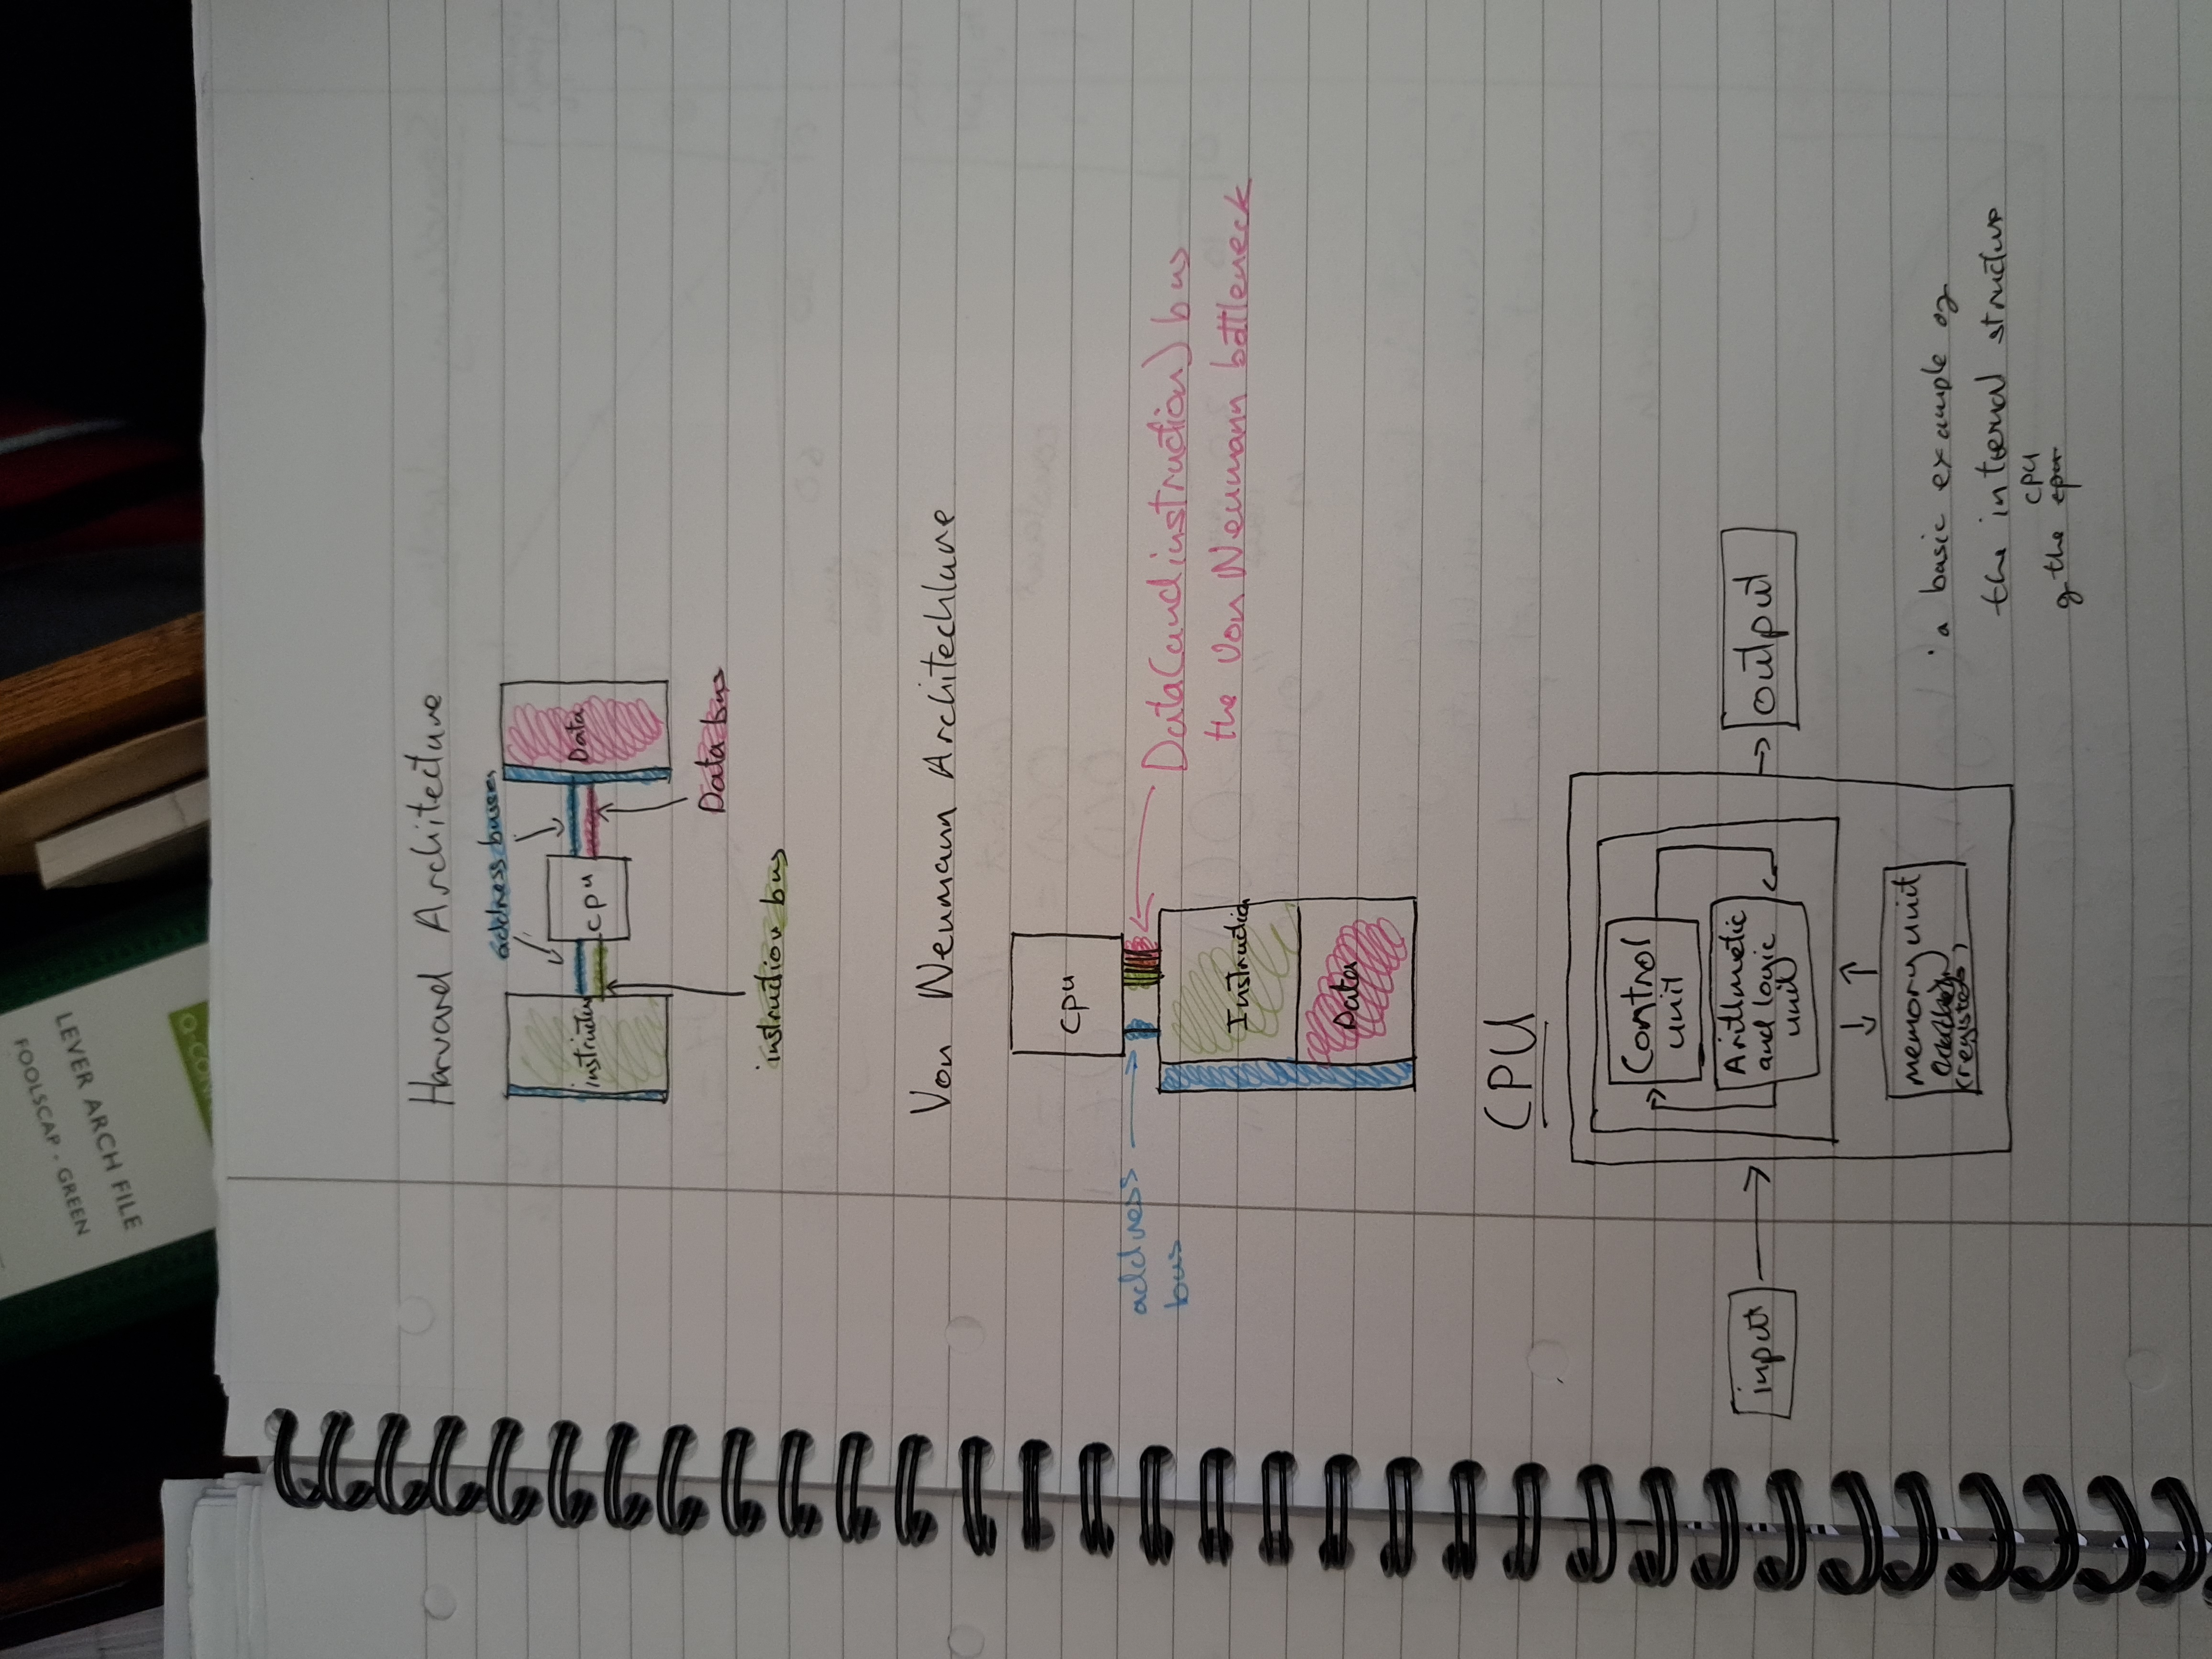 FOOLSCAP · GREEN
LEVER ARCH FILE
Harvard Architecture
address busses
instruction
cpu
Data
Data bus
instruction bus
Von Neumann Architechture
cpu
address
bus
Data(and instruction) bus
the Von Neumann bottleneck
Instruction
Data
CPU
Control
unit
Arithmetic
and logic
unit
input
output
memory unit
(registers)
· a basic example of
the internal structure
cpu
of the cpu